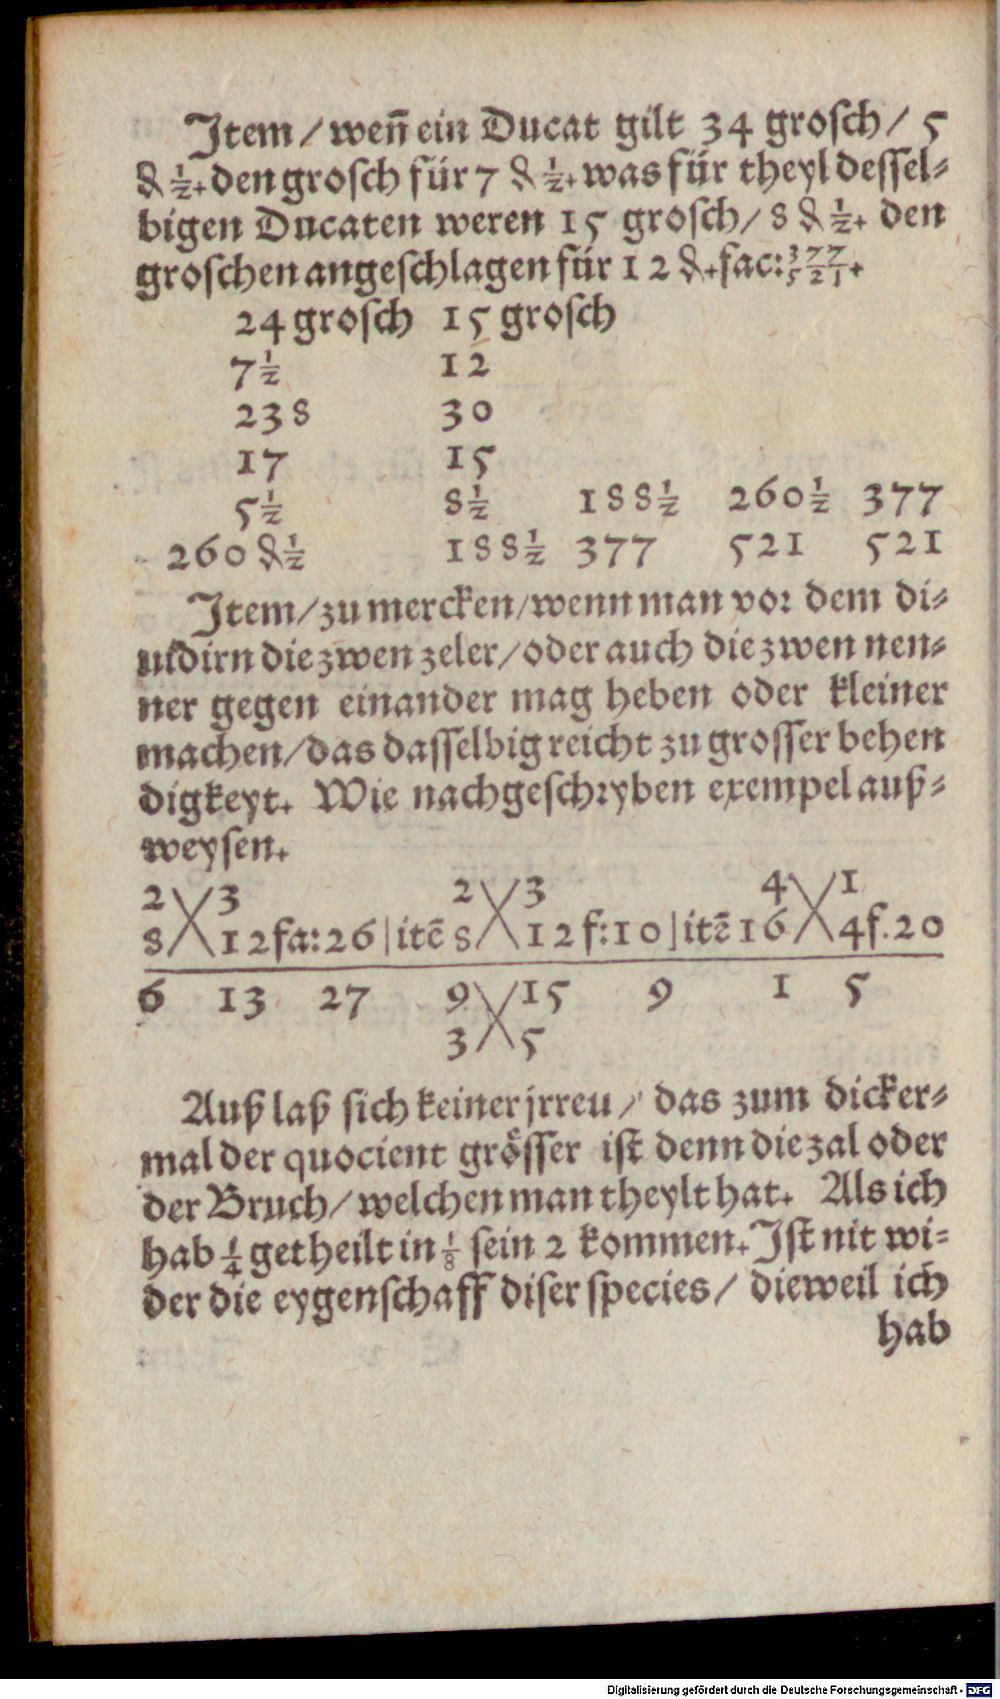 Item / weñ ein Ducat gilt 34 grosch / 5
₰ ½. den grosch für 7 ₰ ½. was für theyl dessel⸗
bigen Ducaten weren 15 grosch / 8 ₰ ½. den
groschen angeschlagen für 12 ₰. fac: 377/521.
24 grosch 15 grosch
7½ 12
238 30
17 15
5½ 8½ 188½ 260½ 377
260 ₰ ½ 188½ 377 521 521
Item / zu mercken / wenn man vor dem di⸗
uidirn die zwen zeler / oder auch die zwen nen⸗
ner gegen einander mag heben oder kleiner
machen / das dasselbig reicht zu grosser behen
digkeyt. Wie nachgeschryben exempel auß⸗
weysen.
2 3 2 3 4 1
8 12 fa: 26 | itẽ 8 12 f: 10 | itẽ 16 4 f. 20
6 13 27 9 15 9 1 5
3 5
Auß laß sich keiner jrreu / das zum dicker⸗
mal der quocient grösser ist denn die zal oder
der Bruch / welchen man theylt hat. Als ich
hab ¼ getheilt in ⅛ sein 2 kommen. Ist nit wi⸗
der die eygenschaff diser species / dieweil ich
hab
Digitalisierung gefördert durch die Deutsche Forschungsgemeinschaft - DFG